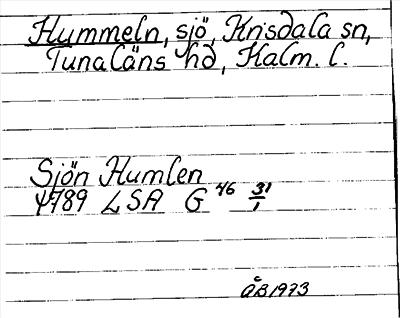 Hummeln, sjö, Krisdala sn,
Tunaläns hd, Kalm. l.
Sjön Humlen
1789 LSA G 46 31/1
ÅB1973